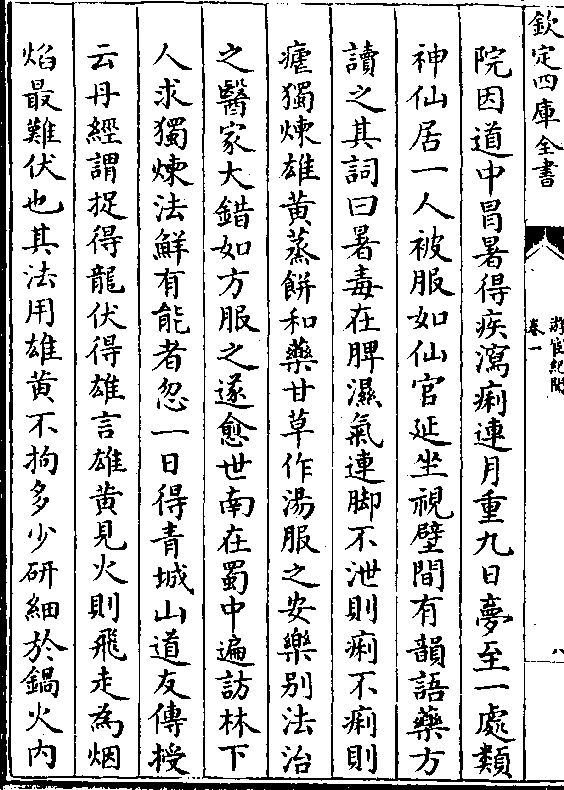 欽定四庫全書
游宦紀聞
卷一
八
院因道中冒暑得疾瀉痢連月重九日夢至一處類
神仙居一人被服如仙官延坐視壁間有韻語藥方
讀之其詞曰暑毒在脾濕氣連脚不泄則痢不痢則
瘧獨煉雄黄蒸餅和藥甘草作湯服之安樂别法治
之醫家大錯如方服之遂愈世南在蜀中遍訪林下
人求獨煉法鮮有能者忽一日得青城山道友傳授
云丹經謂捉得龍伏得雄言雄黄見火則飛走為烟
焰最難伏也其法用雄黄不拘多少研細於鍋火内